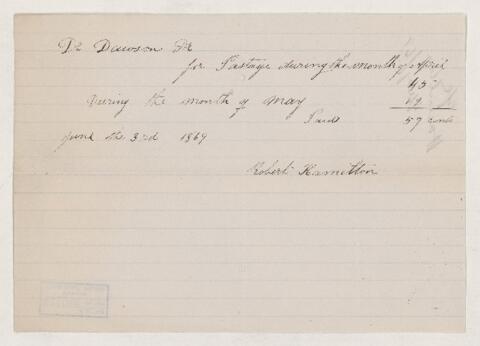 Dr Dawson Dr
for Postage during the month of April
45
During the month of May
Paid 57 cents
June the 3rd 1869
Robert Hamilton